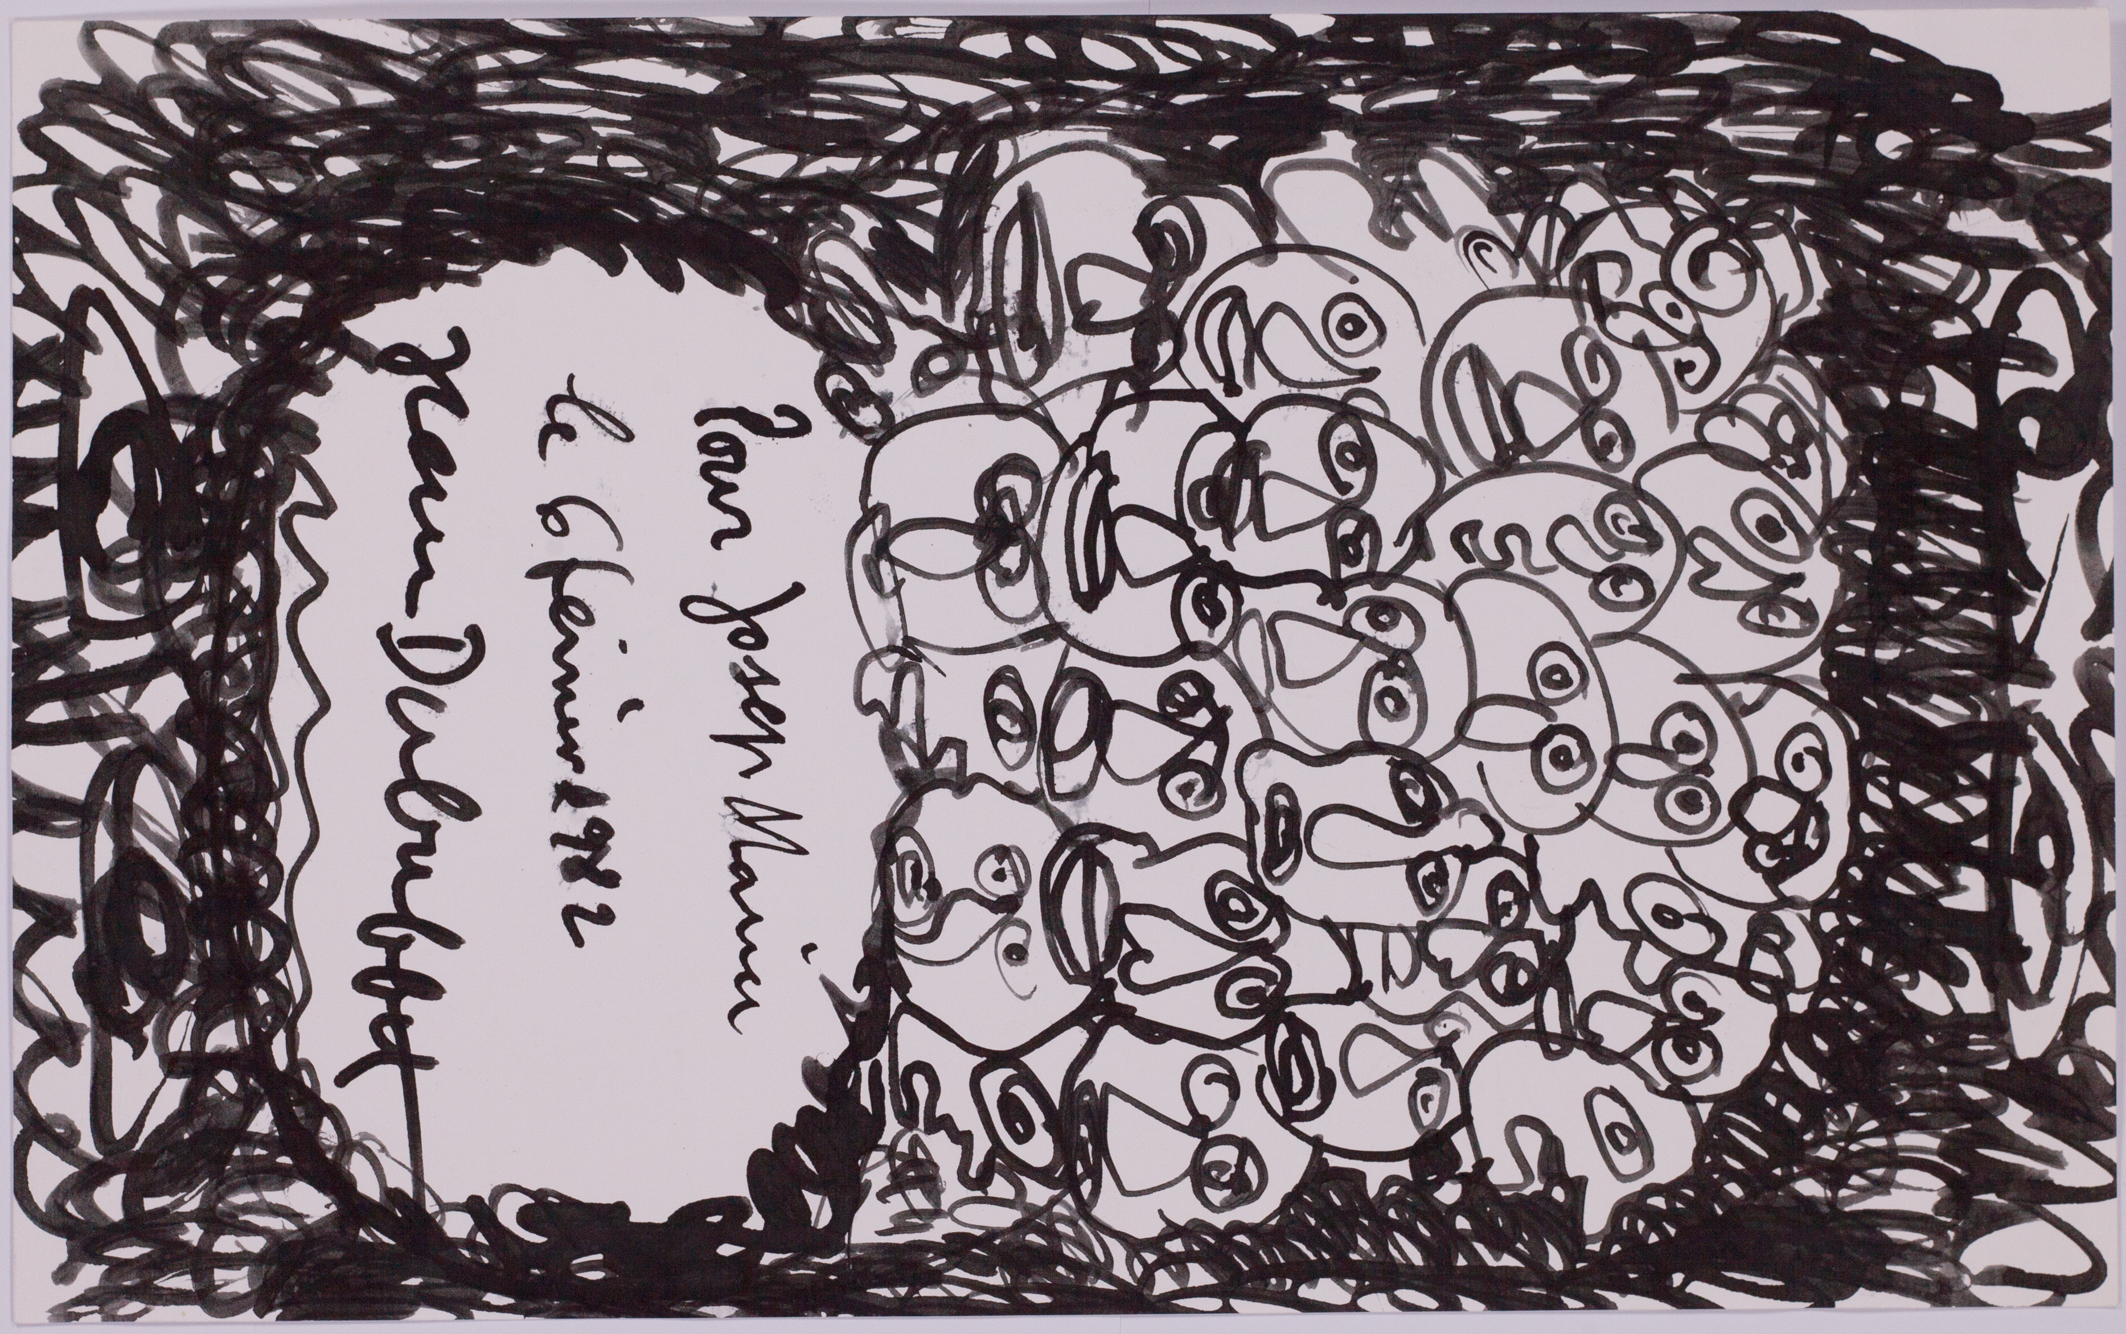 Pour Josep Marin
le 6 février 1982
Jean Dubuffet